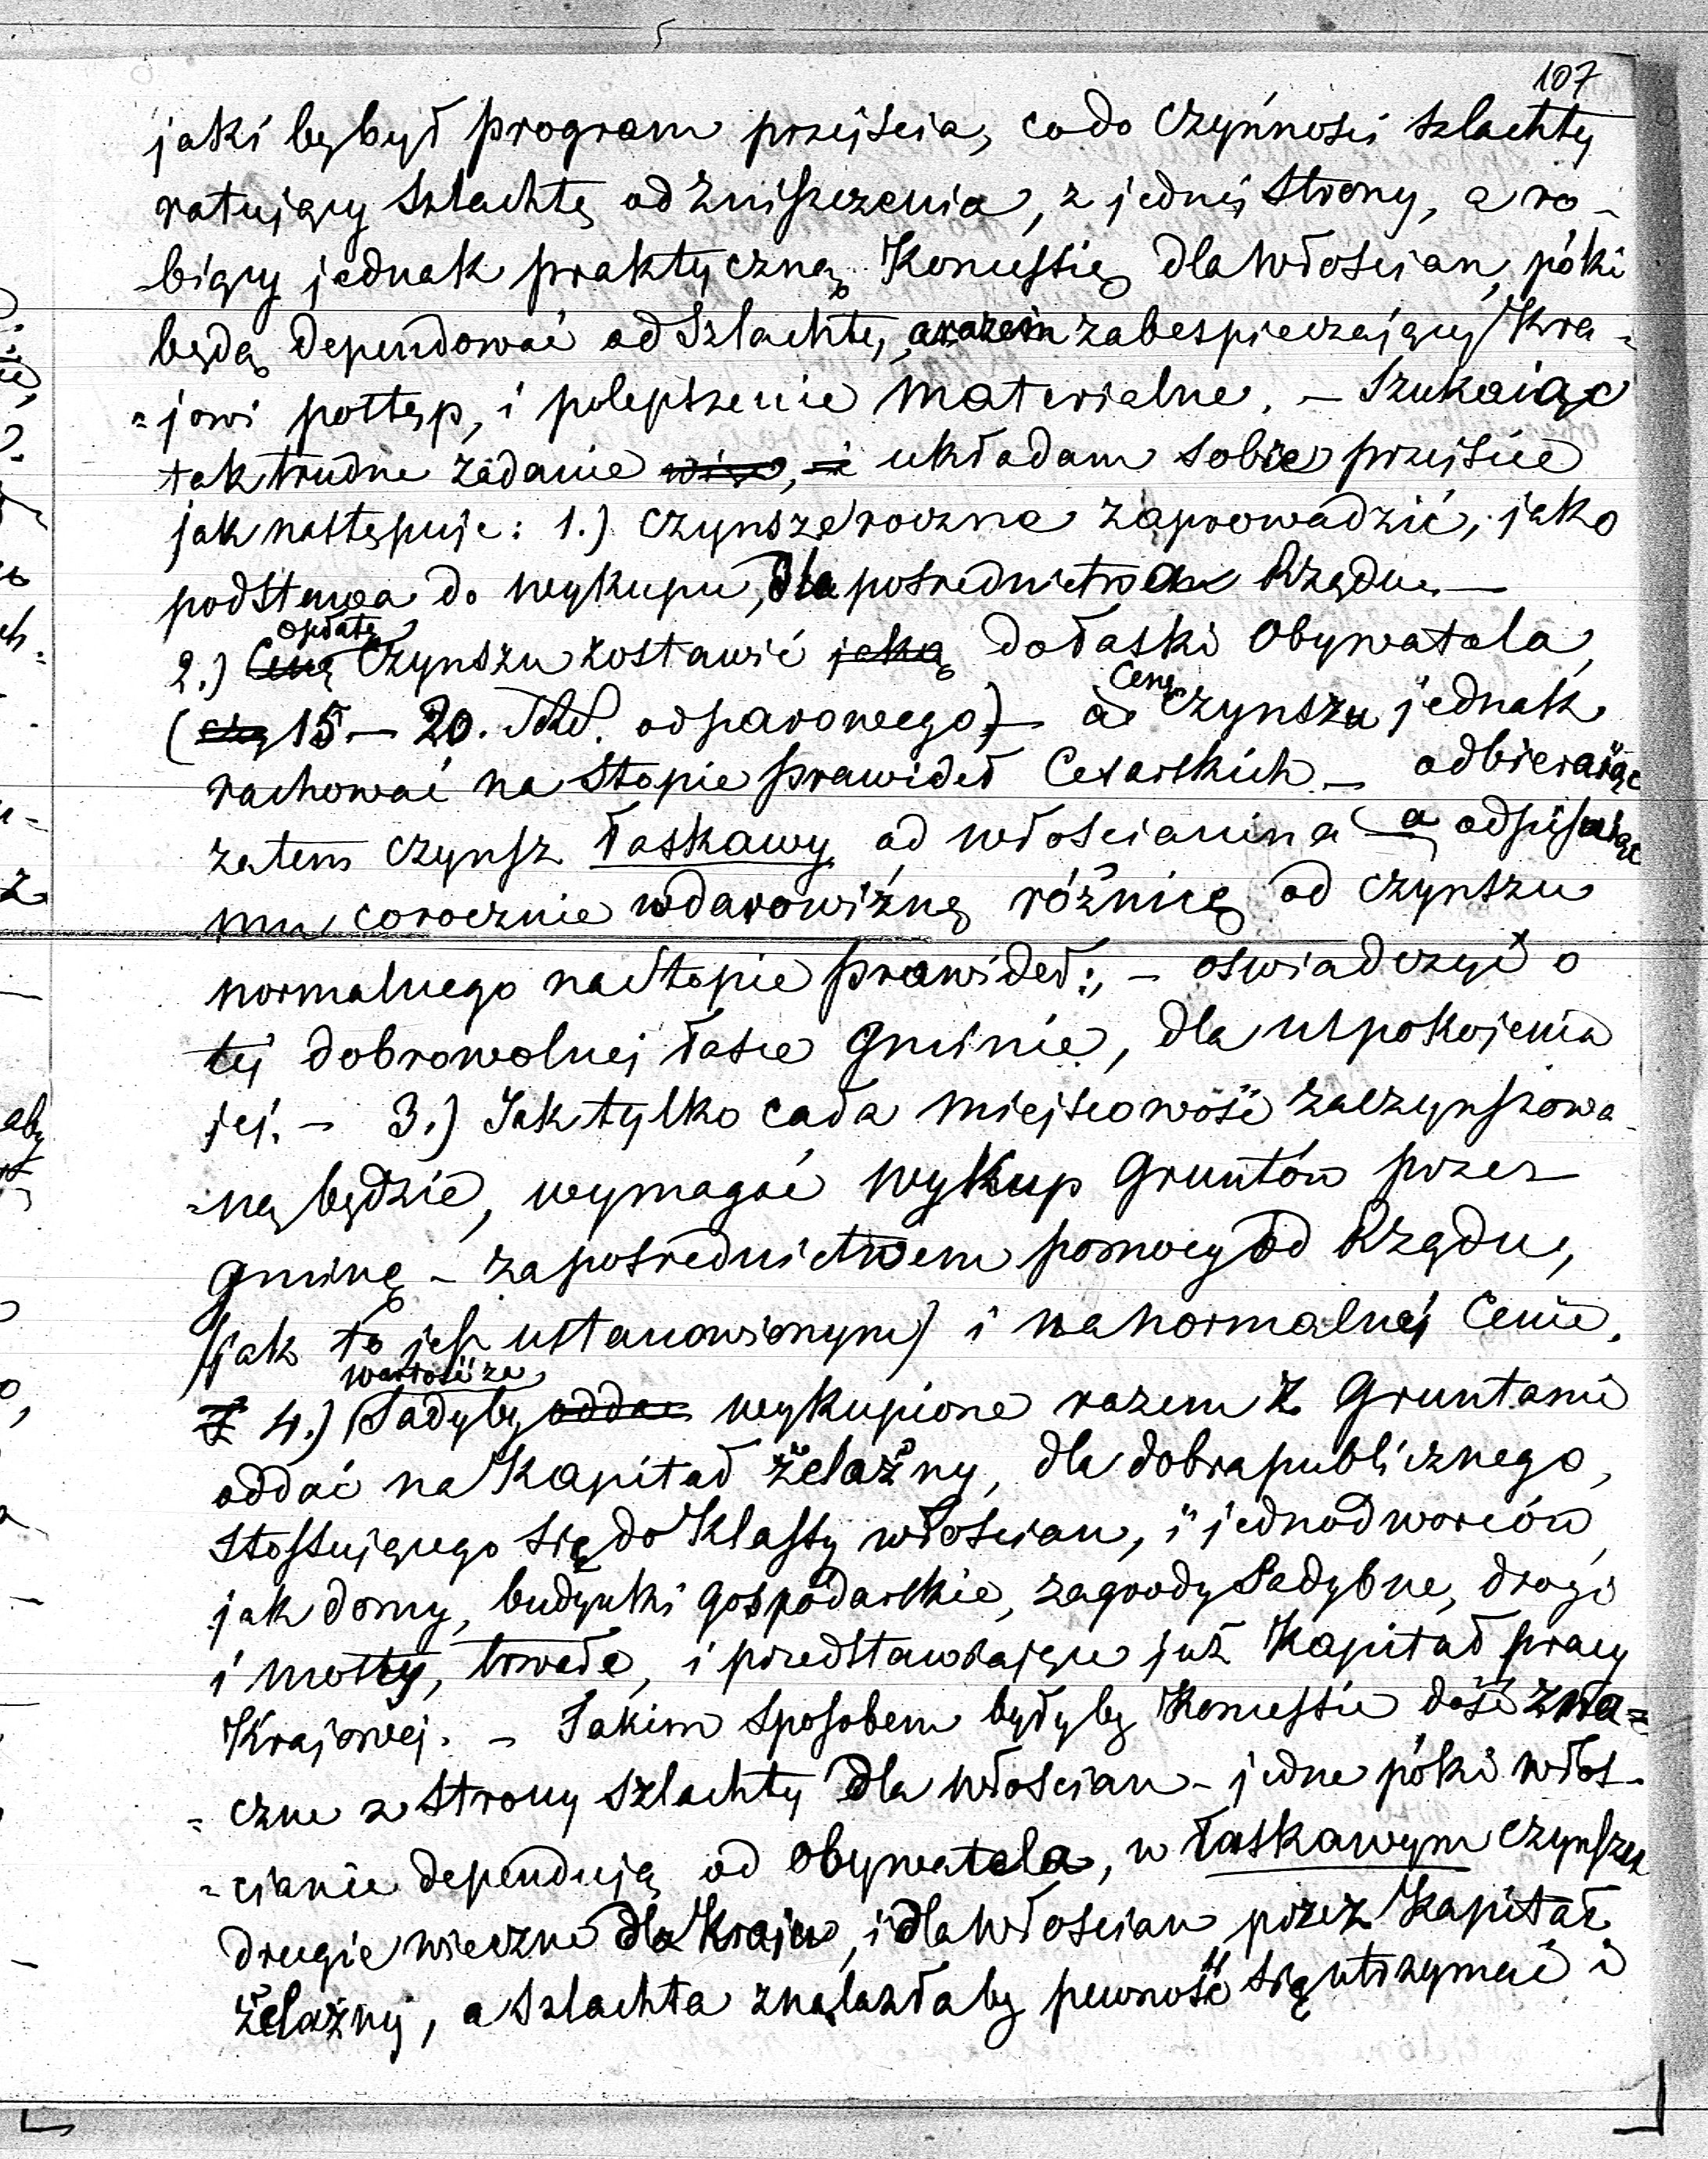 107
jaki byłbył program przejścia, codo czynności szlachty
ratujący szlachtę od zniszczenia, z jednéj strony, a ro-
-biący jednak praktyczną Koncessię dla włościan, póki
będą dependować od Szlachty, a razem zabespieczający Kra-
=jowi postęp, i polepszenie materialne. – Szukaiąc
tak trudne zadanie układam sobie przejście
jak następuje: 1.) czynsze roczne zaprowadzić, jako
podstawa do wykupu, dla pośrednictwa Rządu. —
opłatę
2.) Cenę Czynszu zostawić jaką do łaski Obywatela,
Cenę
(15 – 20. Rbl. odparowego) – a czynszu jednak
rachować na stopie prawideł Cesarskich – odbieraiąc
zatem czynsz łaskawy od włościanina a odpisuiąc
mu corocznie w darowiznę różnicę od czynszu
normalnego na stopie prawideł:, – oswiadczyć o
téj dobrowolnej łasce gminie, dla uspokojenia
jéj. – 3.) Jak tylko cała miejscowość zaczynszowa-
-ną będzie, wymagać wykup gruntów przez
gminę – za pośrednictwem pomocy od Rządu,
(jak to jest ustanowionym) i na normalnéj cenie.
wartość za
4.) Sadyby oddać wykupione razem z gruntami
oddać na Kapitał żelaźny, dla dobra publicznego,
stossującego się do Klassy włościan, i jednodworców,
jak domy, budynki gospodarskie, zagrody Sadybne, drogi
i mosty, trwałe, i przedstawiające już Kapitał pracy
Krajowej. – Takim sposobem byłyby Koncessie dość zna=
=czne z strony szlachty dla włościan – jedne póki włos-
-cianie dependują od obywatela, w łaskawym czynszu
drugie wieczne dla Kraju, i dla włościan przez Kapitał
żelaźny, a szlachta znalazłaby pewność się utrzymać i